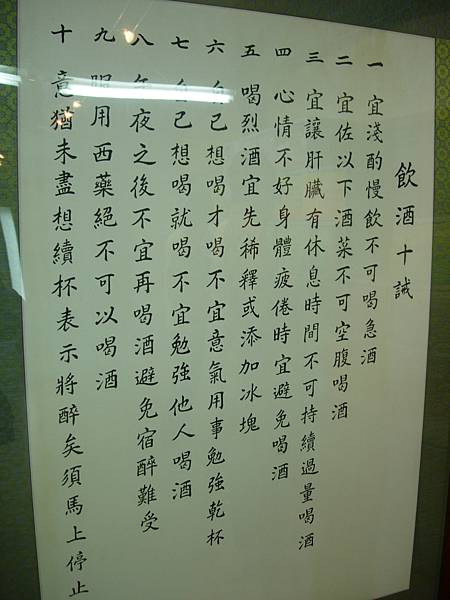 飲酒十誡
一 宜淺酌慢飲不可喝急酒
二 宜佐以下酒菜不可空腹喝酒
三 宜讓肝臟有休息時間不可持續過量喝酒
四 心情不好身體疲倦時宜避免喝酒
五 喝烈酒宜先稀釋或添加冰塊
六 自己想喝才喝不宜意氣用事勉強乾杯
七 自己想喝就喝不宜勉強他人喝酒
八 午夜之後不宜再喝酒避免宿醉難受
九 服用西藥絕不可以喝酒
十 意猶未盡想續杯表示將醉矣須馬上停止